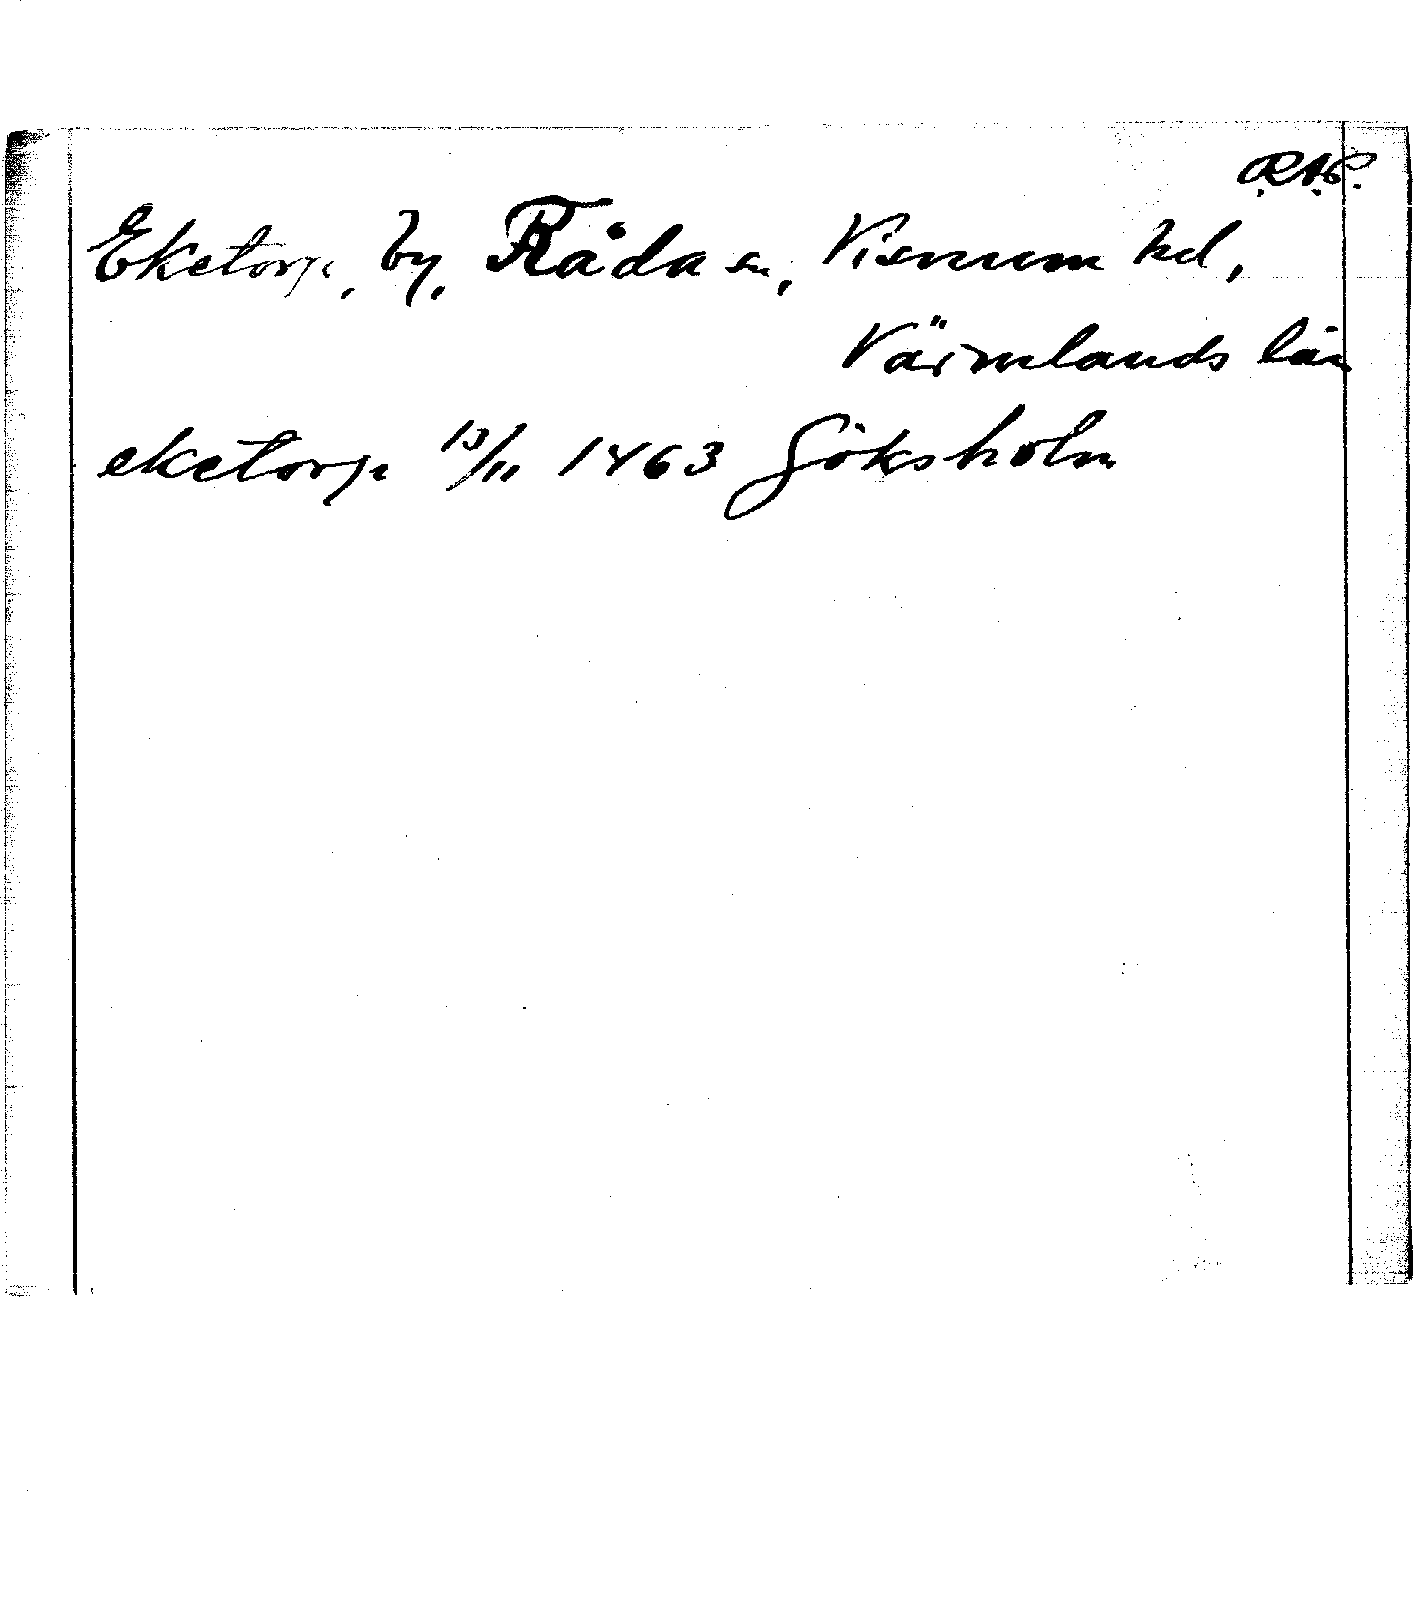 R.A.P.
Eketorp, by, Råda sn, Visnum hd,
Värmlands län
eketorp 13/11 1463 Göksholm